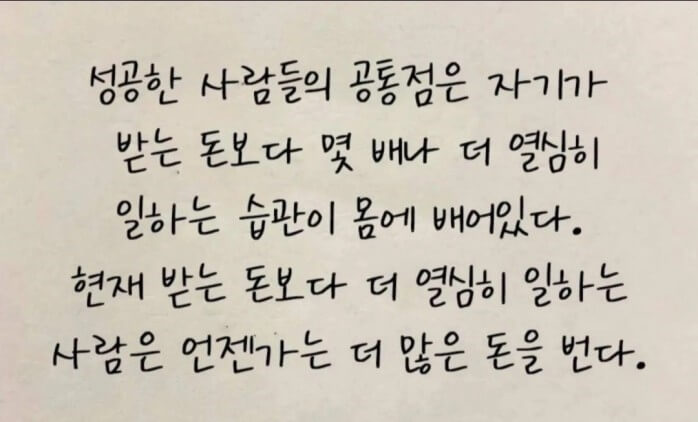 성공한 사람들의 공통점은 자기가
받는 돈보다 몇 배나 더 열심히
일하는 습관이 몸에 배어있다.
현재 받는 돈보다 더 열심히 일하는
사람은 언젠가는 더 많은 돈을 번다.